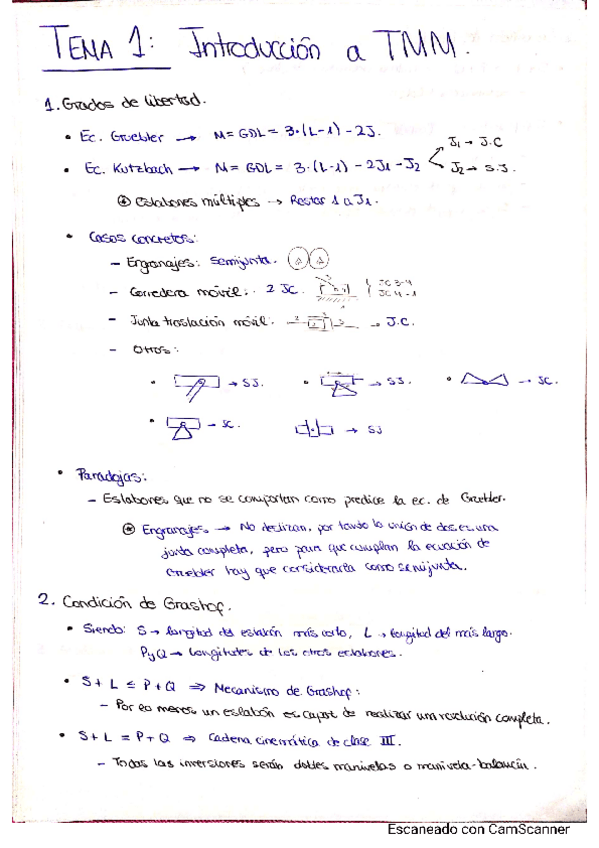 TEMA 1: Introducción a TMM.
1. Grados de libertad.
• Ec. Gruebler → M = GDL = 3·(L-1) - 2J.
• Ec. Kutzbach → M = GDL = 3·(L-1) - 2J1 - J2
J1 → J.C
J2 → S.J.
⊛ Eslabones múltiples → Restar 1 a J1.
• Casos concretos:
- Engranajes: semijunta.
- Corredera móvil: 2 JC.
JC 3-4
JC 4-1
- Junta traslación móvil: → J.C.
- Otros:
• → SJ. • → SJ. • → JC.
• → JC. → SJ
• Paradojas:
- Eslabones que no se comportan como predice la ec. de Gruebler.
⊛ Engranajes → No deslizan, por tanto la unión de dos es una
junta completa, pero para que cumplan la ecuación de
Gruebler hay que considerarla como semijunta.
2. Condición de Grashof.
• Siendo: S → longitud del eslabón más corto, L → longitud del más largo.
P y Q → Longitudes de los otros eslabones.
• S + L ≤ P + Q ⇒ Mecanismo de Grashof:
- Por lo menos un eslabón es capaz de realizar una revolución completa.
• S + L = P + Q ⇒ Cadena cinemática de clase III.
- Todas las inversiones serán dobles manivelas o manivela-balancín.
Escaneado con CamScanner